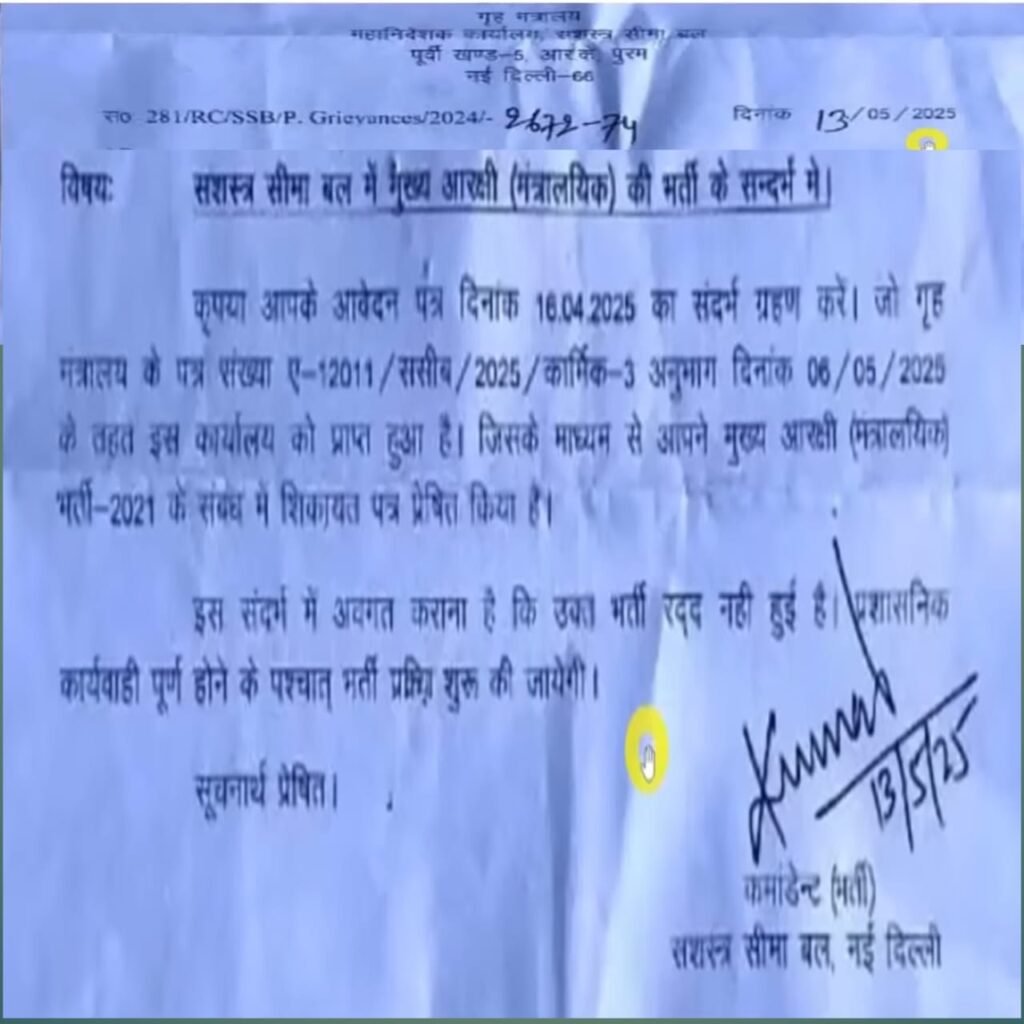 गृह मंत्रालय
महानिदेशक कार्यालय, सशस्त्र सीमा बल
पूर्वी खण्ड-5, आर०के० पुरम
नई दिल्ली-66
स० 281/RC/SSB/P. Grievances/2024/- 2672-74 दिनांक 13/05/2025
विषयः सशस्त्र सीमा बल में मुख्य आरक्षी (मंत्रालयिक) की भर्ती के सन्दर्भ मे।
कृपया आपके आवेदन पत्र दिनांक 16.04.2025 का संदर्भ ग्रहण करें। जो गृह
मंत्रालय के पत्र संख्या ए-12011/ससीब/2025/कार्मिक-3 अनुभाग दिनांक 06/05/2025
के तहत इस कार्यालय को प्राप्त हुआ है। जिसके माध्यम से आपने मुख्य आरक्षी (मंत्रालयिक)
भर्ती-2021 के संबंध में शिकायत पत्र प्रेषित किया है।
इस संदर्भ में अवगत कराना है कि उक्त भर्ती रद्द नही हुई है। प्रशासनिक
कार्यवाही पूर्ण होने के पश्चात् भर्ती शुरू की जायेगी।
सूचनार्थ प्रेषित।
Kumar
13/5/25
कमांडेन्ट (भर्ती)
सशस्त्र सीमा बल, नई दिल्ली